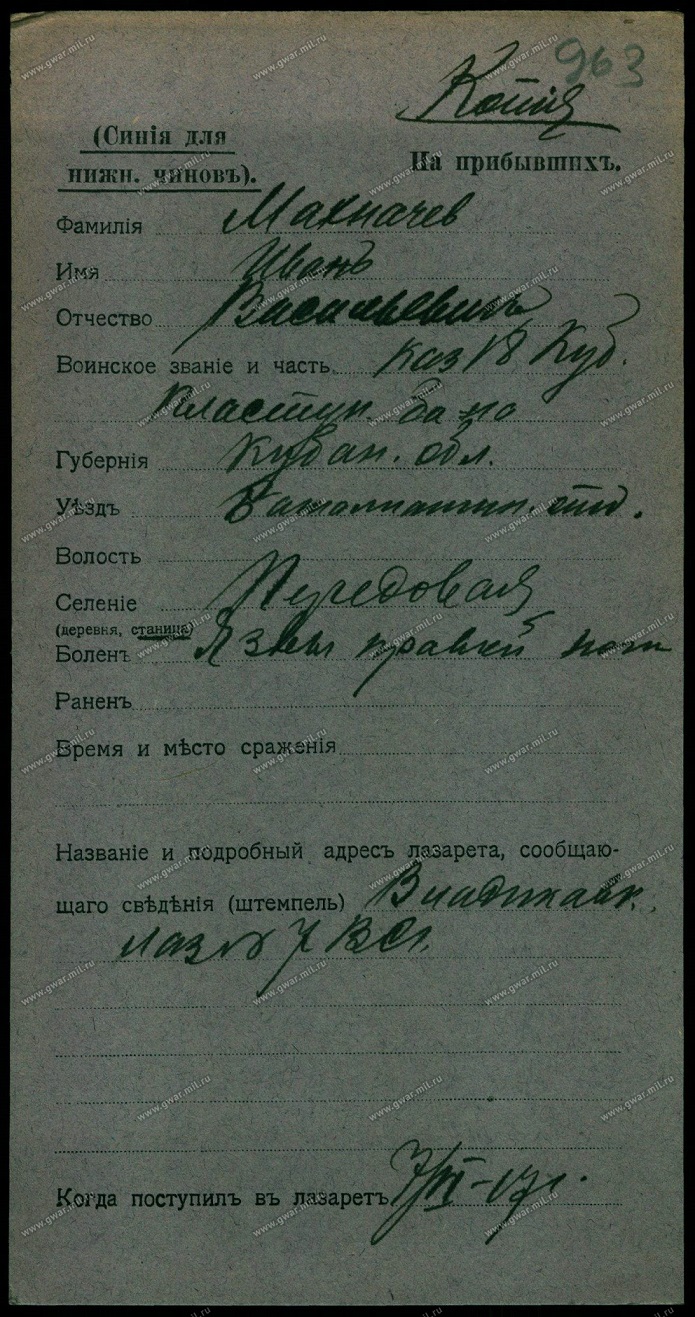 963
Копія
(Синія для
нижн. чиновъ).
На прибывшихъ.
Фамилія Махначев
Имя Иванъ
Отчество Васильевичъ
Воинское званіе и часть каз 18 Куб.
Пластун. ба-на
Губернія Кубан. обл.
Уѣздъ Баталпашин. отд.
Волость
Селеніе Передовая
(деревня, станица)
Боленъ Язвы правой ноги
Раненъ
Время и мѣсто сраженія
Названіе и подробный адресъ лазарета, сообщаю-
щаго свѣдѣнія (штемпель) Владикавк.
Лаз № 7 ВСГ.
Когда поступилъ въ лазаретъ 7/VI-17 г.
www.gwar.mil.ru